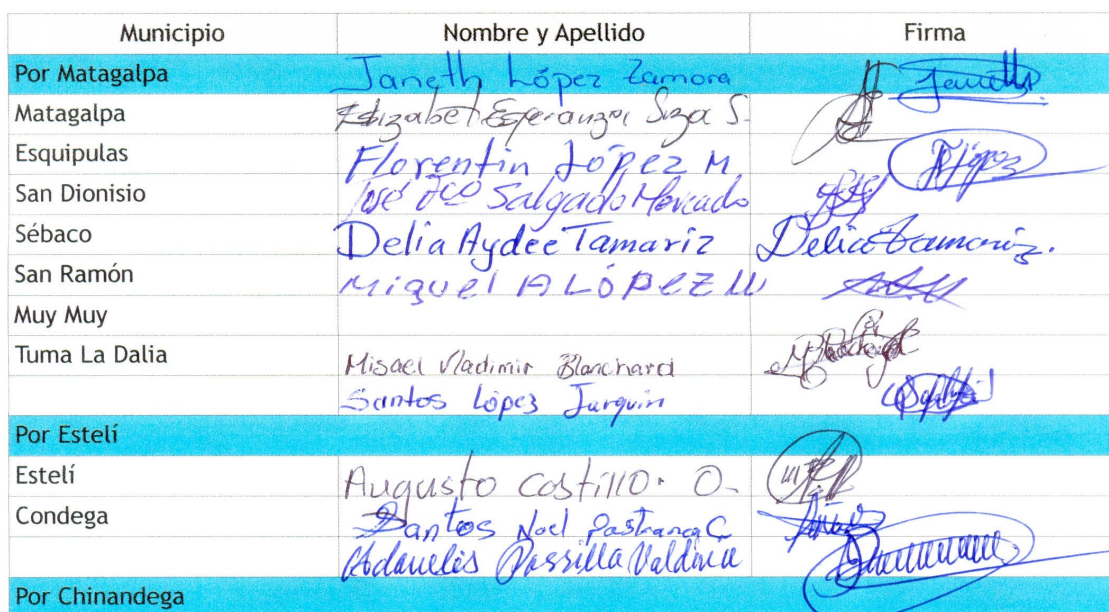 Municipio Nombre y Apellido Firma
Por Matagalpa Janeth López Zamora Janeth
Matagalpa Elizabet Esperanza Siza S.
Esquipulas Florentin López M FLópez
San Dionisio José Fco Salgado Mercado
Sébaco Delia Aydee Tamariz Delia Tamariz.
San Ramón Miguel A LÓPEZ M
Muy Muy
Tuma La Dalia Misael Vladimir Blanchard
Santos López Jarquin
Por Estelí
Estelí Augusto Castillo. O.
Condega Santos Noel Pastrana C
Valdivia
Por Chinandega